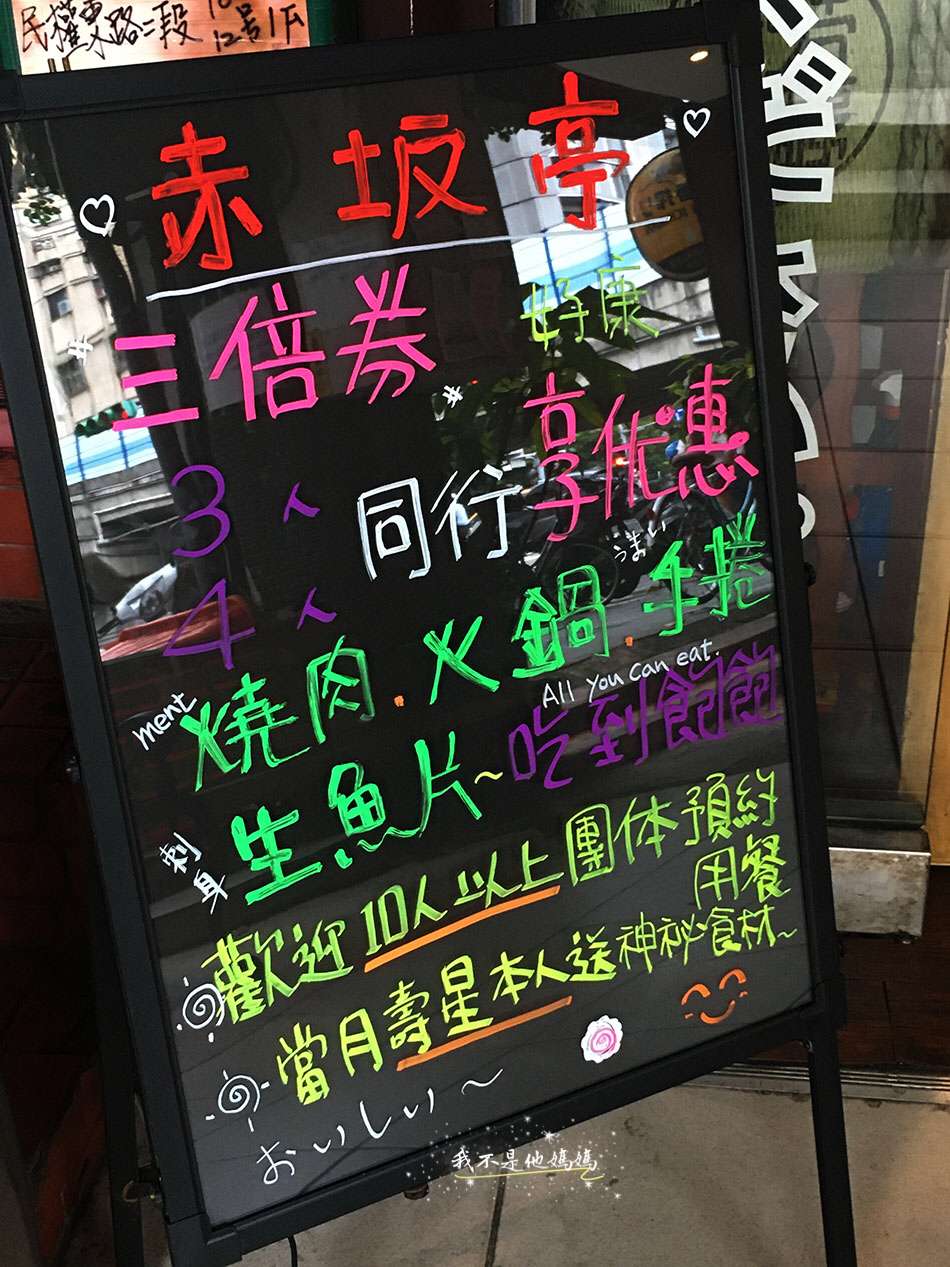 民權東路二段
12号1F
赤坂亭
三倍券 好康
3人
4人 同行享優惠
うまい
燒肉.火鍋.手捲
ment
All you can eat.
生魚片~吃到飽飽
刺身
歡迎10人以上團体預約
用餐
當月壽星本人送神祕食材~
おいしい~
我不是他媽媽